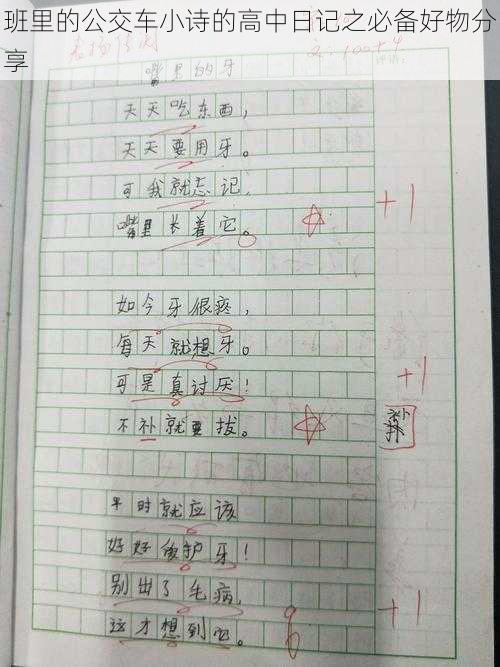 班里的公交车小诗的高中日记之必备好物分
享
嘴里的牙
天天吃东西，
天天要用牙。
可我就忘记，
嘴里长着它。
+1
如今牙很疼，
每天就想牙。
可是真讨厌！
不补就要拔。
+1
补
平时就应该
好好爱护牙！
别出了毛病，
这才想到它。
+1